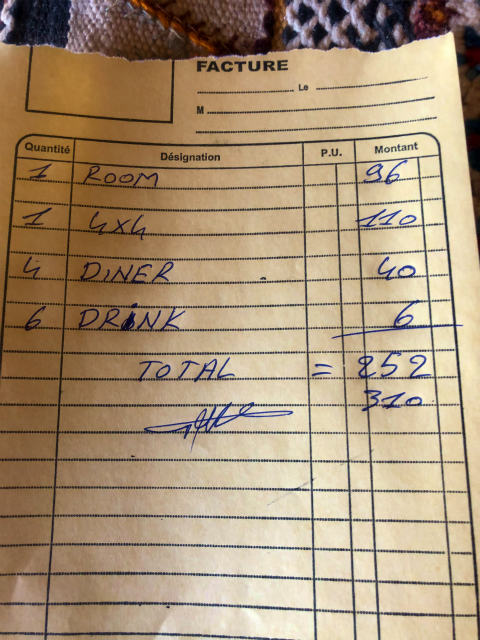 FACTURE
Le
M
Quantité Désignation P.U. Montant
1 ROOM 96
1 4x4 110
4 DINER 40
6 DRINK 6
TOTAL = 252
310